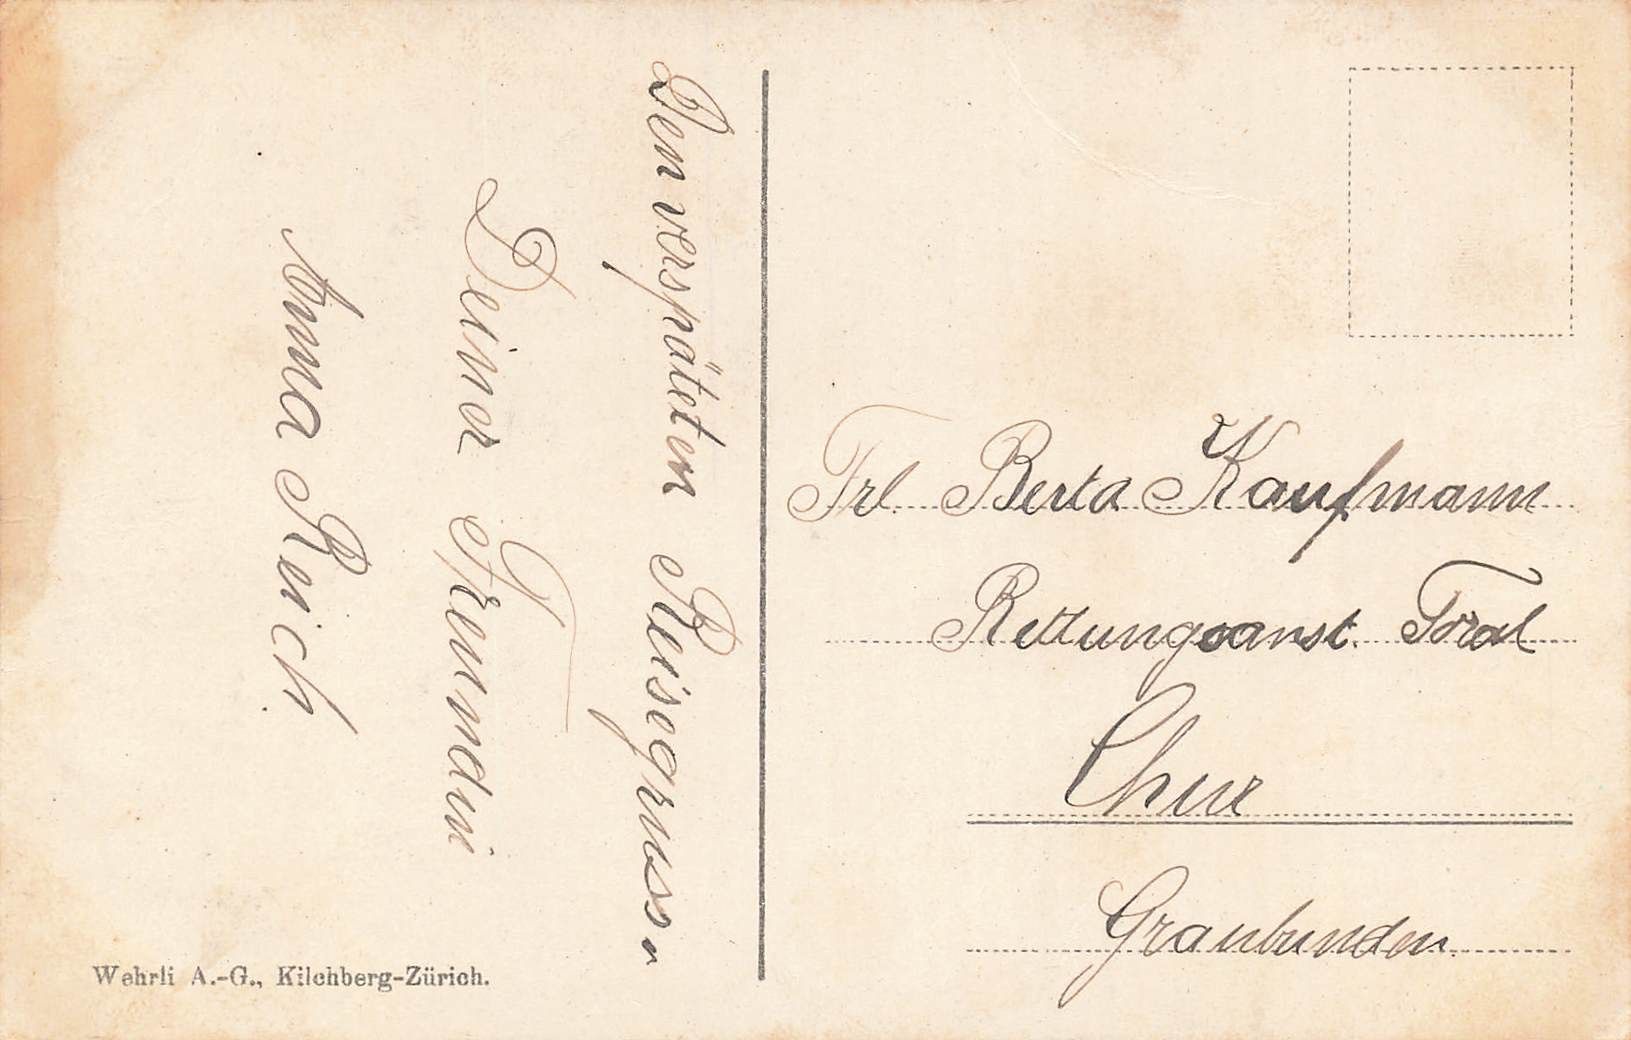 Den verspäteten Reisegruss v
Deiner Freundin
Anna Reich
Frl. Berta Kaufmann
Rettungsanst. Foral
Chur
Graubunden.
Wehrli A.-G., Kilchberg-Zürich.